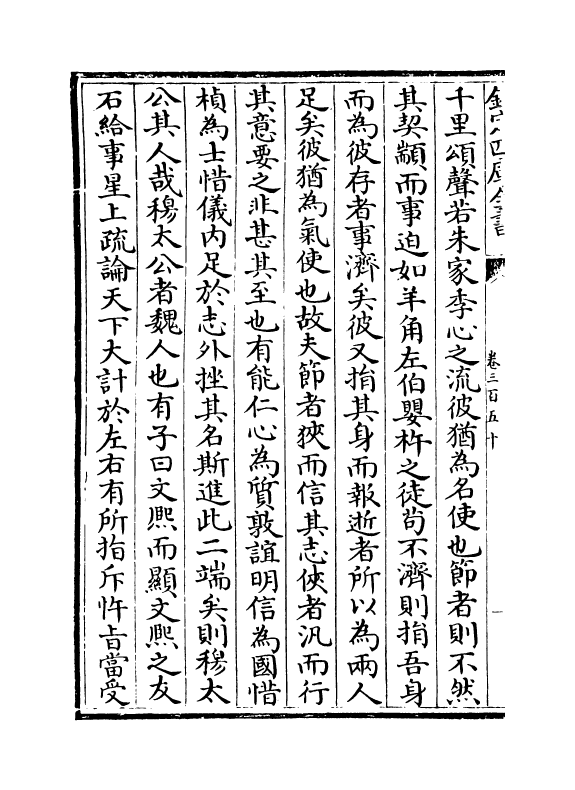 欽定四庫全書
卷三百五十
千里頌聲若朱家季心之流彼猶為名使也節者則不然
其契顓而事迫如羊角左伯嬰杵之徒茍不濟則捐吾身
而為彼存者事濟矣彼又捐其身而報逝者所以為兩人
足矣彼猶為氣使也故夫節者狹而信其志俠者汎而行
其意要之非甚其至也有能仁心為質敦誼明信為國惜
楨為士惜儀内足於志外挫其名斯進此二端矣則穆太
公其人哉穆太公者魏人也有子曰文熙而顯文熙之友
石給事星上疏論天下大計於左右有所指斥忤㫖當受